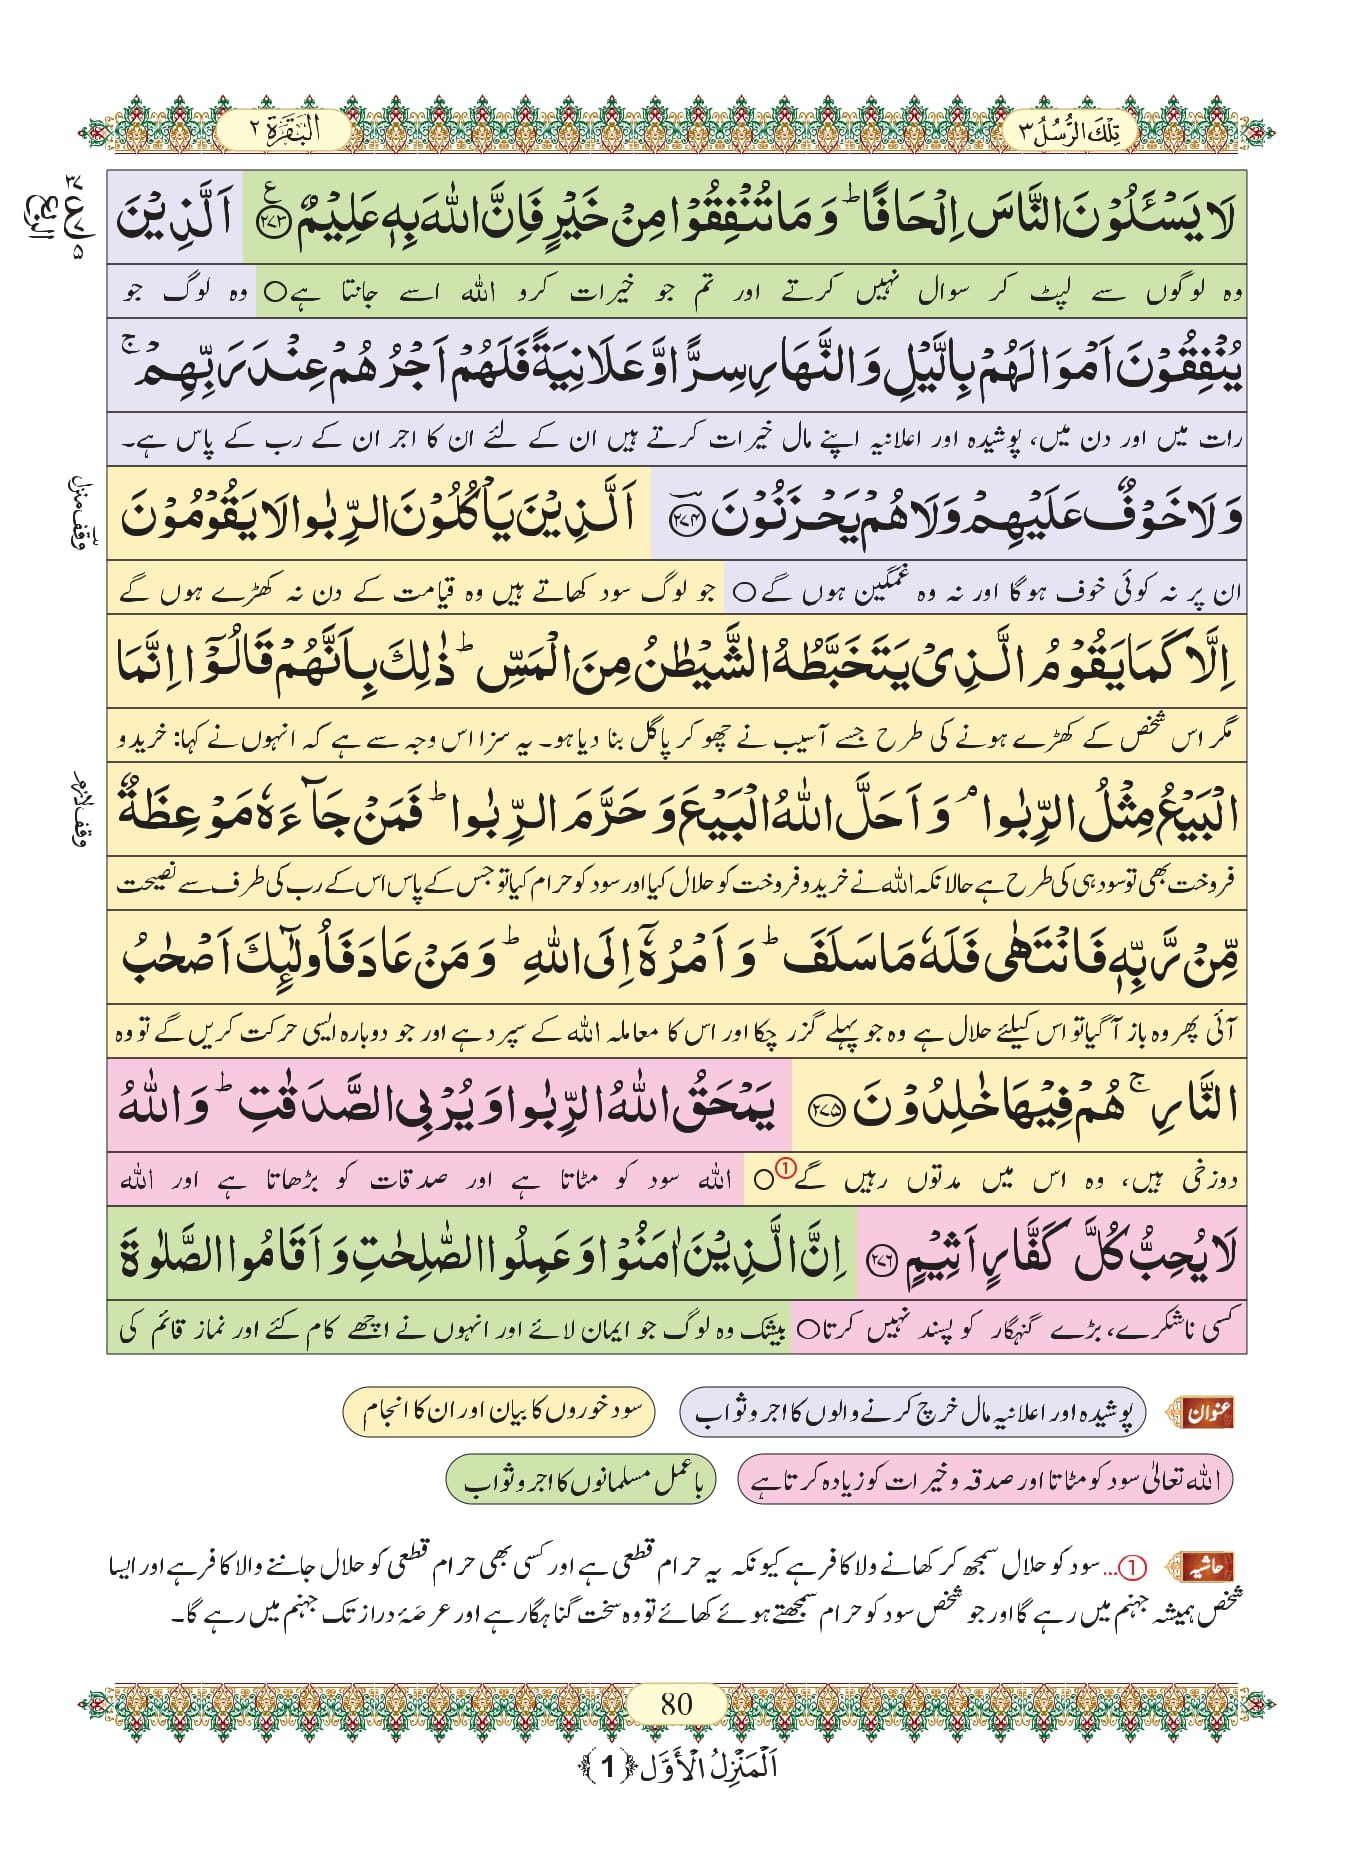 تِلْكَ الرُّسُلُ ٣
اَلْبَقَرَة ٢
لَا یَسْـَٔلُوْنَ النَّاسَ اِلْحَافًاؕ وَ مَا تُنْفِقُوْا مِنْ خَیْرٍ فَاِنَّ اللّٰهَ بِهٖ عَلِیْمٌ۠ ﴿۲۷۳﴾ اَلَّذِیْنَ
وہ لوگوں سے لپٹ کر سوال نہیں کرتے اور تم جو خیرات کرو اللہ اسے جانتا ہے○ وہ لوگ جو
یُنْفِقُوْنَ اَمْوَالَهُمْ بِالَّیْلِ وَ النَّهَارِ سِرًّا وَّ عَلَانِیَةً فَلَهُمْ اَجْرُهُمْ عِنْدَ رَبِّهِمْۚ
رات میں اور دن میں، پوشیدہ اور اعلانیہ اپنے مال خیرات کرتے ہیں ان کے لئے ان کا اجر ان کے رب کے پاس ہے۔
وَ لَا خَوْفٌ عَلَیْهِمْ وَ لَا هُمْ یَحْزَنُوْنَ ﴿۲۷۴﴾ اَلَّذِیْنَ یَاْكُلُوْنَ الرِّبٰوا لَا یَقُوْمُوْنَ
ان پر نہ کوئی خوف ہوگا اور نہ وہ غمگین ہوں گے○ جو لوگ سود کھاتے ہیں وہ قیامت کے دن نہ کھڑے ہوں گے
اِلَّا كَمَا یَقُوْمُ الَّذِیْ یَتَخَبَّطُهُ الشَّیْطٰنُ مِنَ الْمَسِّؕ ذٰلِكَ بِاَنَّهُمْ قَالُوْۤا اِنَّمَا
مگر اس شخص کے کھڑے ہونے کی طرح جسے آسیب نے چھو کر پاگل بنا دیا ہو۔ یہ سزا اس وجہ سے ہے کہ انہوں نے کہا: خرید و
الْبَیْعُ مِثْلُ الرِّبٰواۘ وَ اَحَلَّ اللّٰهُ الْبَیْعَ وَ حَرَّمَ الرِّبٰواؕ فَمَنْ جَآءَهٗ مَوْعِظَةٌ
فروخت بھی تو سود ہی کی طرح ہے حالانکہ اللہ نے خرید و فروخت کو حلال کیا اور سود کو حرام کیا تو جس کے پاس اس کے رب کی طرف سے نصیحت
مِّنْ رَّبِّهٖ فَانْتَهٰى فَلَهٗ مَا سَلَفَؕ وَ اَمْرُهٗۤ اِلَى اللّٰهِؕ وَ مَنْ عَادَ فَاُولٰٓىٕكَ اَصْحٰبُ
آئی پھر وہ باز آ گیا تو اس کیلئے حلال ہے وہ جو پہلے گزر چکا اور اس کا معاملہ اللہ کے سپرد ہے اور جو دوبارہ ایسی حرکت کریں گے تو وہ
النَّارِۚ هُمْ فِیْهَا خٰلِدُوْنَ ﴿۲۷۵﴾ یَمْحَقُ اللّٰهُ الرِّبٰوا وَ یُرْبِی الصَّدَقٰتِؕ وَ اللّٰهُ
دوزخی ہیں، وہ اس میں مدتوں رہیں گے①○ اللہ سود کو مٹاتا ہے اور صدقات کو بڑھاتا ہے اور اللہ
لَا یُحِبُّ كُلَّ كَفَّارٍ اَثِیْمٍ ﴿۲۷۶﴾ اِنَّ الَّذِیْنَ اٰمَنُوْا وَ عَمِلُوا الصّٰلِحٰتِ وَ اَقَامُوا الصَّلٰوةَ
کسی ناشکرے، بڑے گنہگار کو پسند نہیں کرتا○ بیشک وہ لوگ جو ایمان لائے اور انہوں نے اچھے کام کئے اور نماز قائم کی
الربع
ع
٥
وقف منزل
وقف لازم
عنوان پوشیدہ اور اعلانیہ مال خرچ کرنے والوں کا اجر و ثواب سود خوروں کا بیان اور ان کا انجام
اللہ تعالیٰ سود کو مٹاتا اور صدقہ و خیرات کو زیادہ کرتا ہے باعمل مسلمانوں کا اجر و ثواب
حاشیہ ①... سود کو حلال سمجھ کر کھانے ولا کافر ہے کیونکہ یہ حرام قطعی ہے اور کسی بھی حرام قطعی کو حلال جاننے والا کافر ہے اور ایسا
شخص ہمیشہ جہنم میں رہے گا اور جو شخص سود کو حرام سمجھتے ہوئے کھائے تو وہ سخت گناہگار ہے اور عرصۂ دراز تک جہنم میں رہے گا۔
80
اَلْمَنْزِلُ الْأَوَّل ﴿1﴾